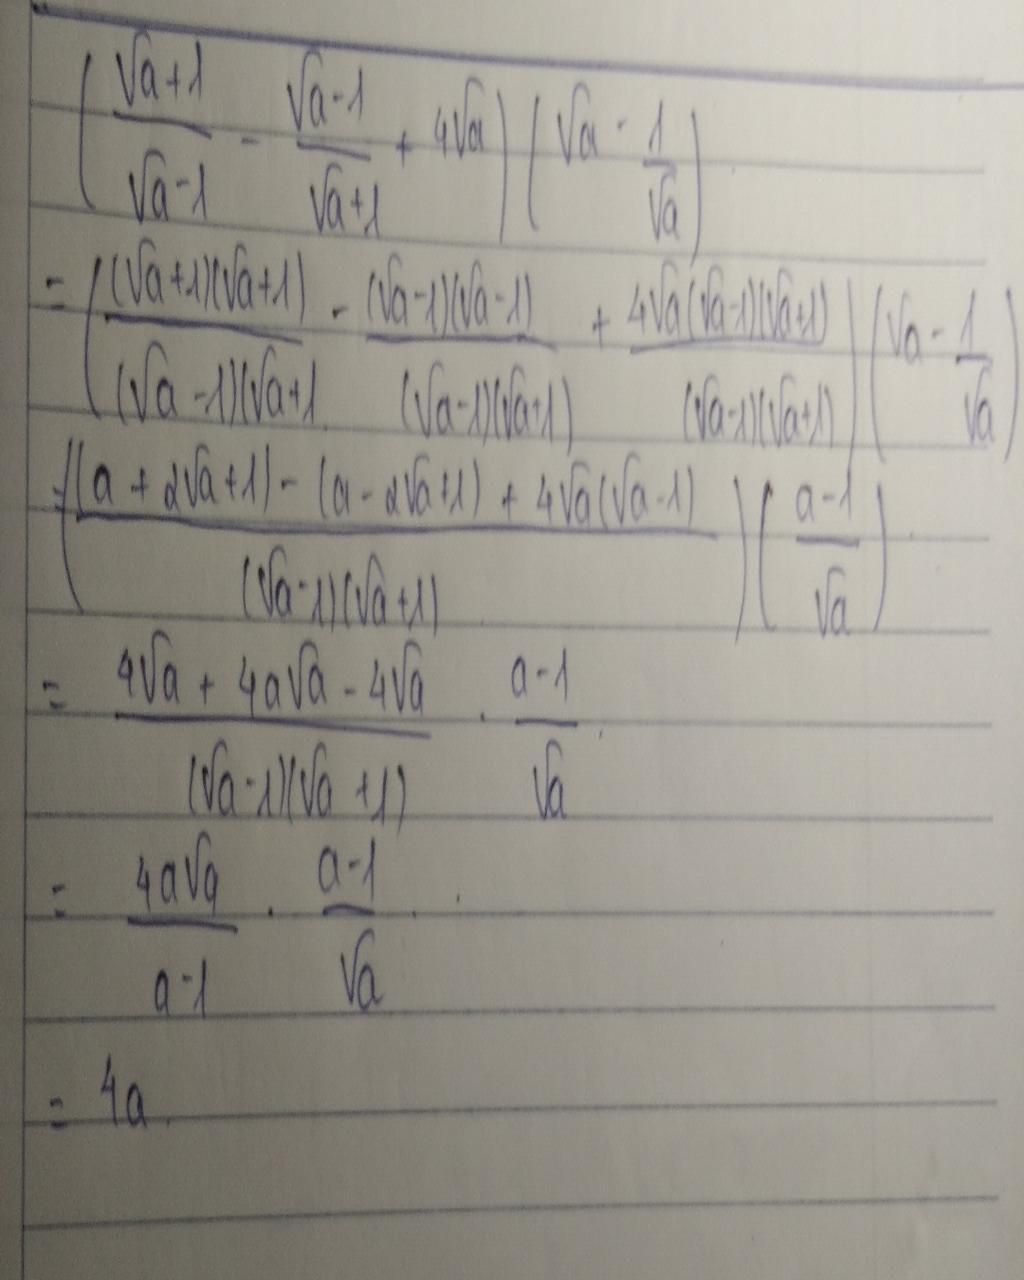 (√a+1/√a-1 - √a-1/√a+1 + 4√a)(√a - 1/√a)
= ((√a+1)(√a+1)/(√a-1)(√a+1 - (√a-1)(√a-1)/(√a-1)(√a+1) + 4√a(√a-1)(√a+1)/(√a-1)(√a+1))(√a - 1/√a)
= ((a + 2√a+1) - (a - 2√a+1) + 4√a(√a-1)/(√a-1)(√a+1))(a-1/√a)
= 4√a + 4a√a - 4√a/(√a-1)(√a+1) . a-1/√a
= 4a√a/a-1 . a-1/√a
= 4a